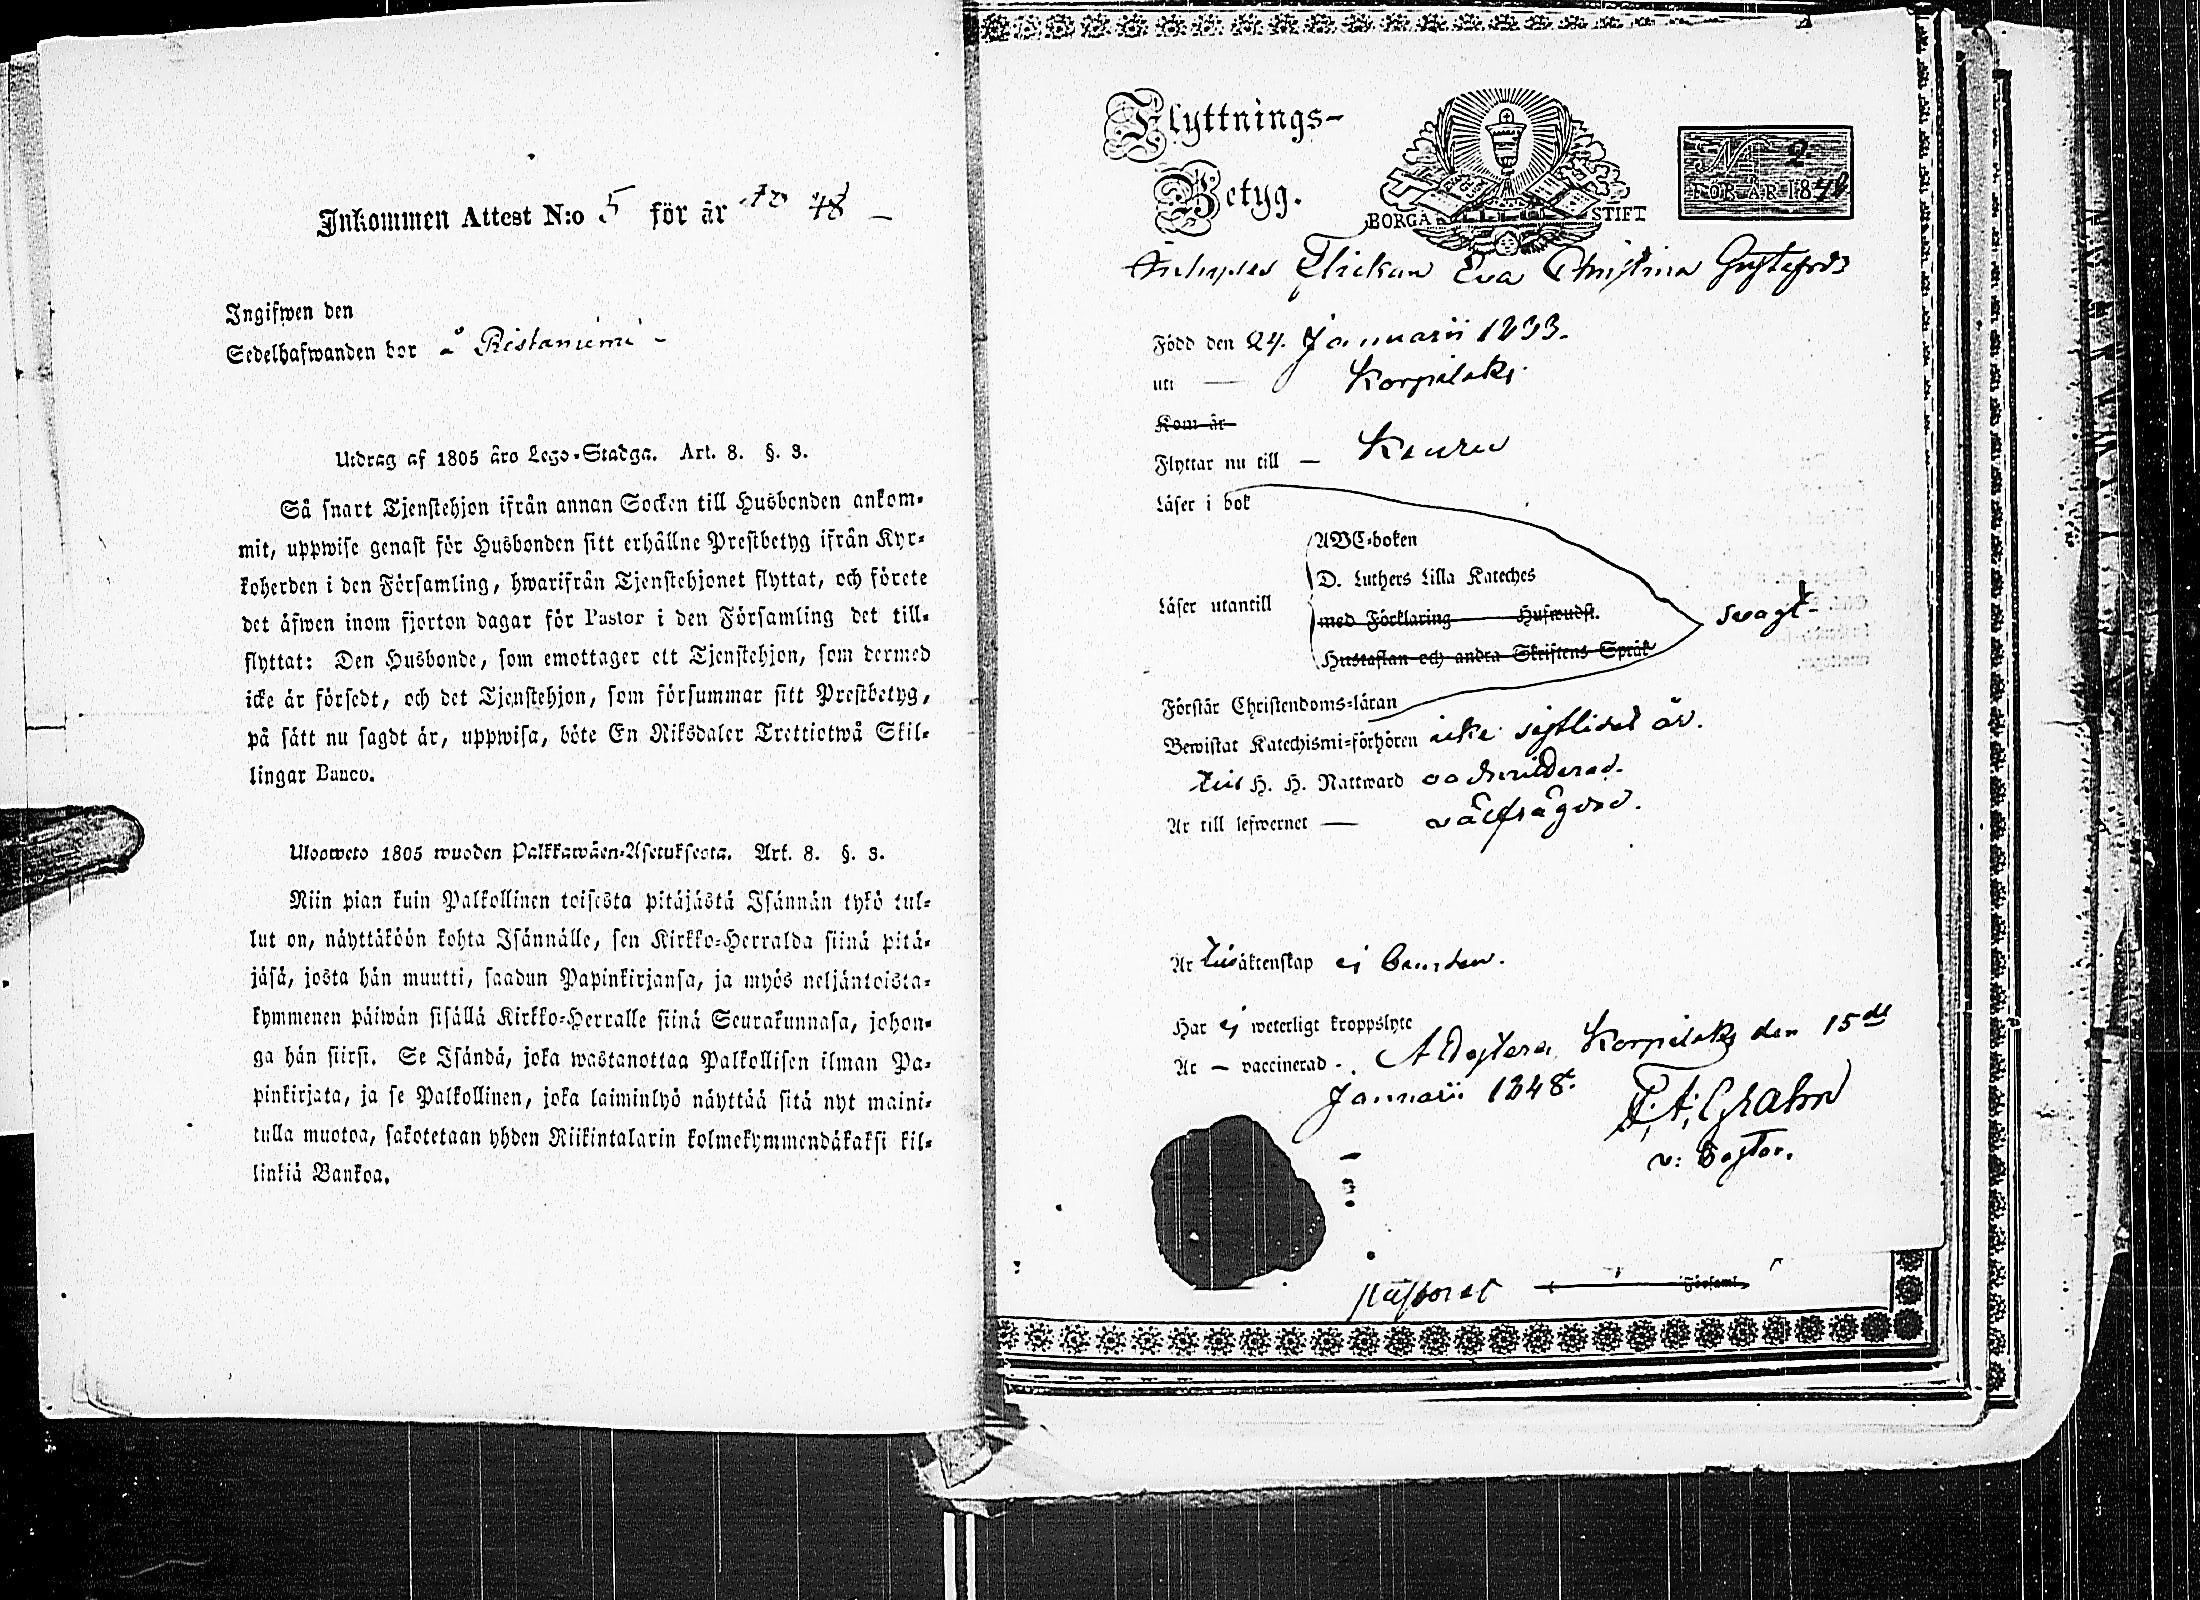 Inkommen Attest N:o 5 för år 48
Ingifwen den
Sedelhafwanden bor å Ristaniemi
Utdrag af 1805 års Lego-Stadga. Art. 8. §. 3.
Så snart Tjenstehjon ifrån annan Socken till Husbonden ankom-
mit, uppwise genast för Husbonden sitt erhållne Prestbetyg ifrån Kyr-
koherden i den Församling, hwarifrån Tjenstehjonet flyttat, och förete
det äfwen inom fjorton dagar för Pastor i den Församling det till-
flyttat: Den Husbonde, som emottager ett Tjenstehjon, som dermed
icke är försedt, och det Tjenstehjon, som försummar sitt Prestbetyg,
på sätt nu sagdt är, uppwisa, böte En Riksdaler Trettiotwå Skil-
lingar Banco.
Uloswcto 1805 wuoden Palkkawäen-Asetuksesta. Art. 8. §. 3.
Niin pian kuin Palkollinen toisesta pitäjästä Isännän tykö tul-
lut on, näyttäköön kohta Isännälle, sen Kirkko-Herralda siinä pitä-
jäsä, josta hän muutti, saadun Papinkirjansa, ja myös neljäntoista-
kymmenen päiwän sisällä Kirkko-Herralle siinä Seurakunnasa, johon-
ga hän siirsi. Se Isändä, joka wastanottaa Palkollisen ilman Pa-
pinkirjata, ja se Palkollinen, joka laiminlyö näyttää sitä nyt maini-
tulla muotoa, sakotetaan yhden Riikintalarin kolmekymmendäkaksi kil-
linkiä Bankoa.
Flyttnings-
Betyg.
BORGÅ STIFT
N 2
FÖR ÅR 1848
Flickan Eva Christina Gustafsd:r
Född den 24. Januarii 1833.
uti — Korpilaks
Kom år
Flyttar nu till — Keuru
Läser i bok
ABC-boken
D. Luthers Lilla Kateches
Läser utantill
med Förklaring Hufwudst.
Hustaflan och andra Skriftens Språk
svagt
Förstår Christendoms-läran
Bewistat Katechismi-förhören icke sistlidet år.
till H. H. Nattward oadmitterad.
Är till lefwernet — välfrägdad.
Är till äktenskap ej bunden.
Har ej weterligt kroppslyte
Är — vaccinerad. Attestera Korpilaks den 15de
Januarii 1848.
F. A. Grahn
v: Pastor.
Församl.